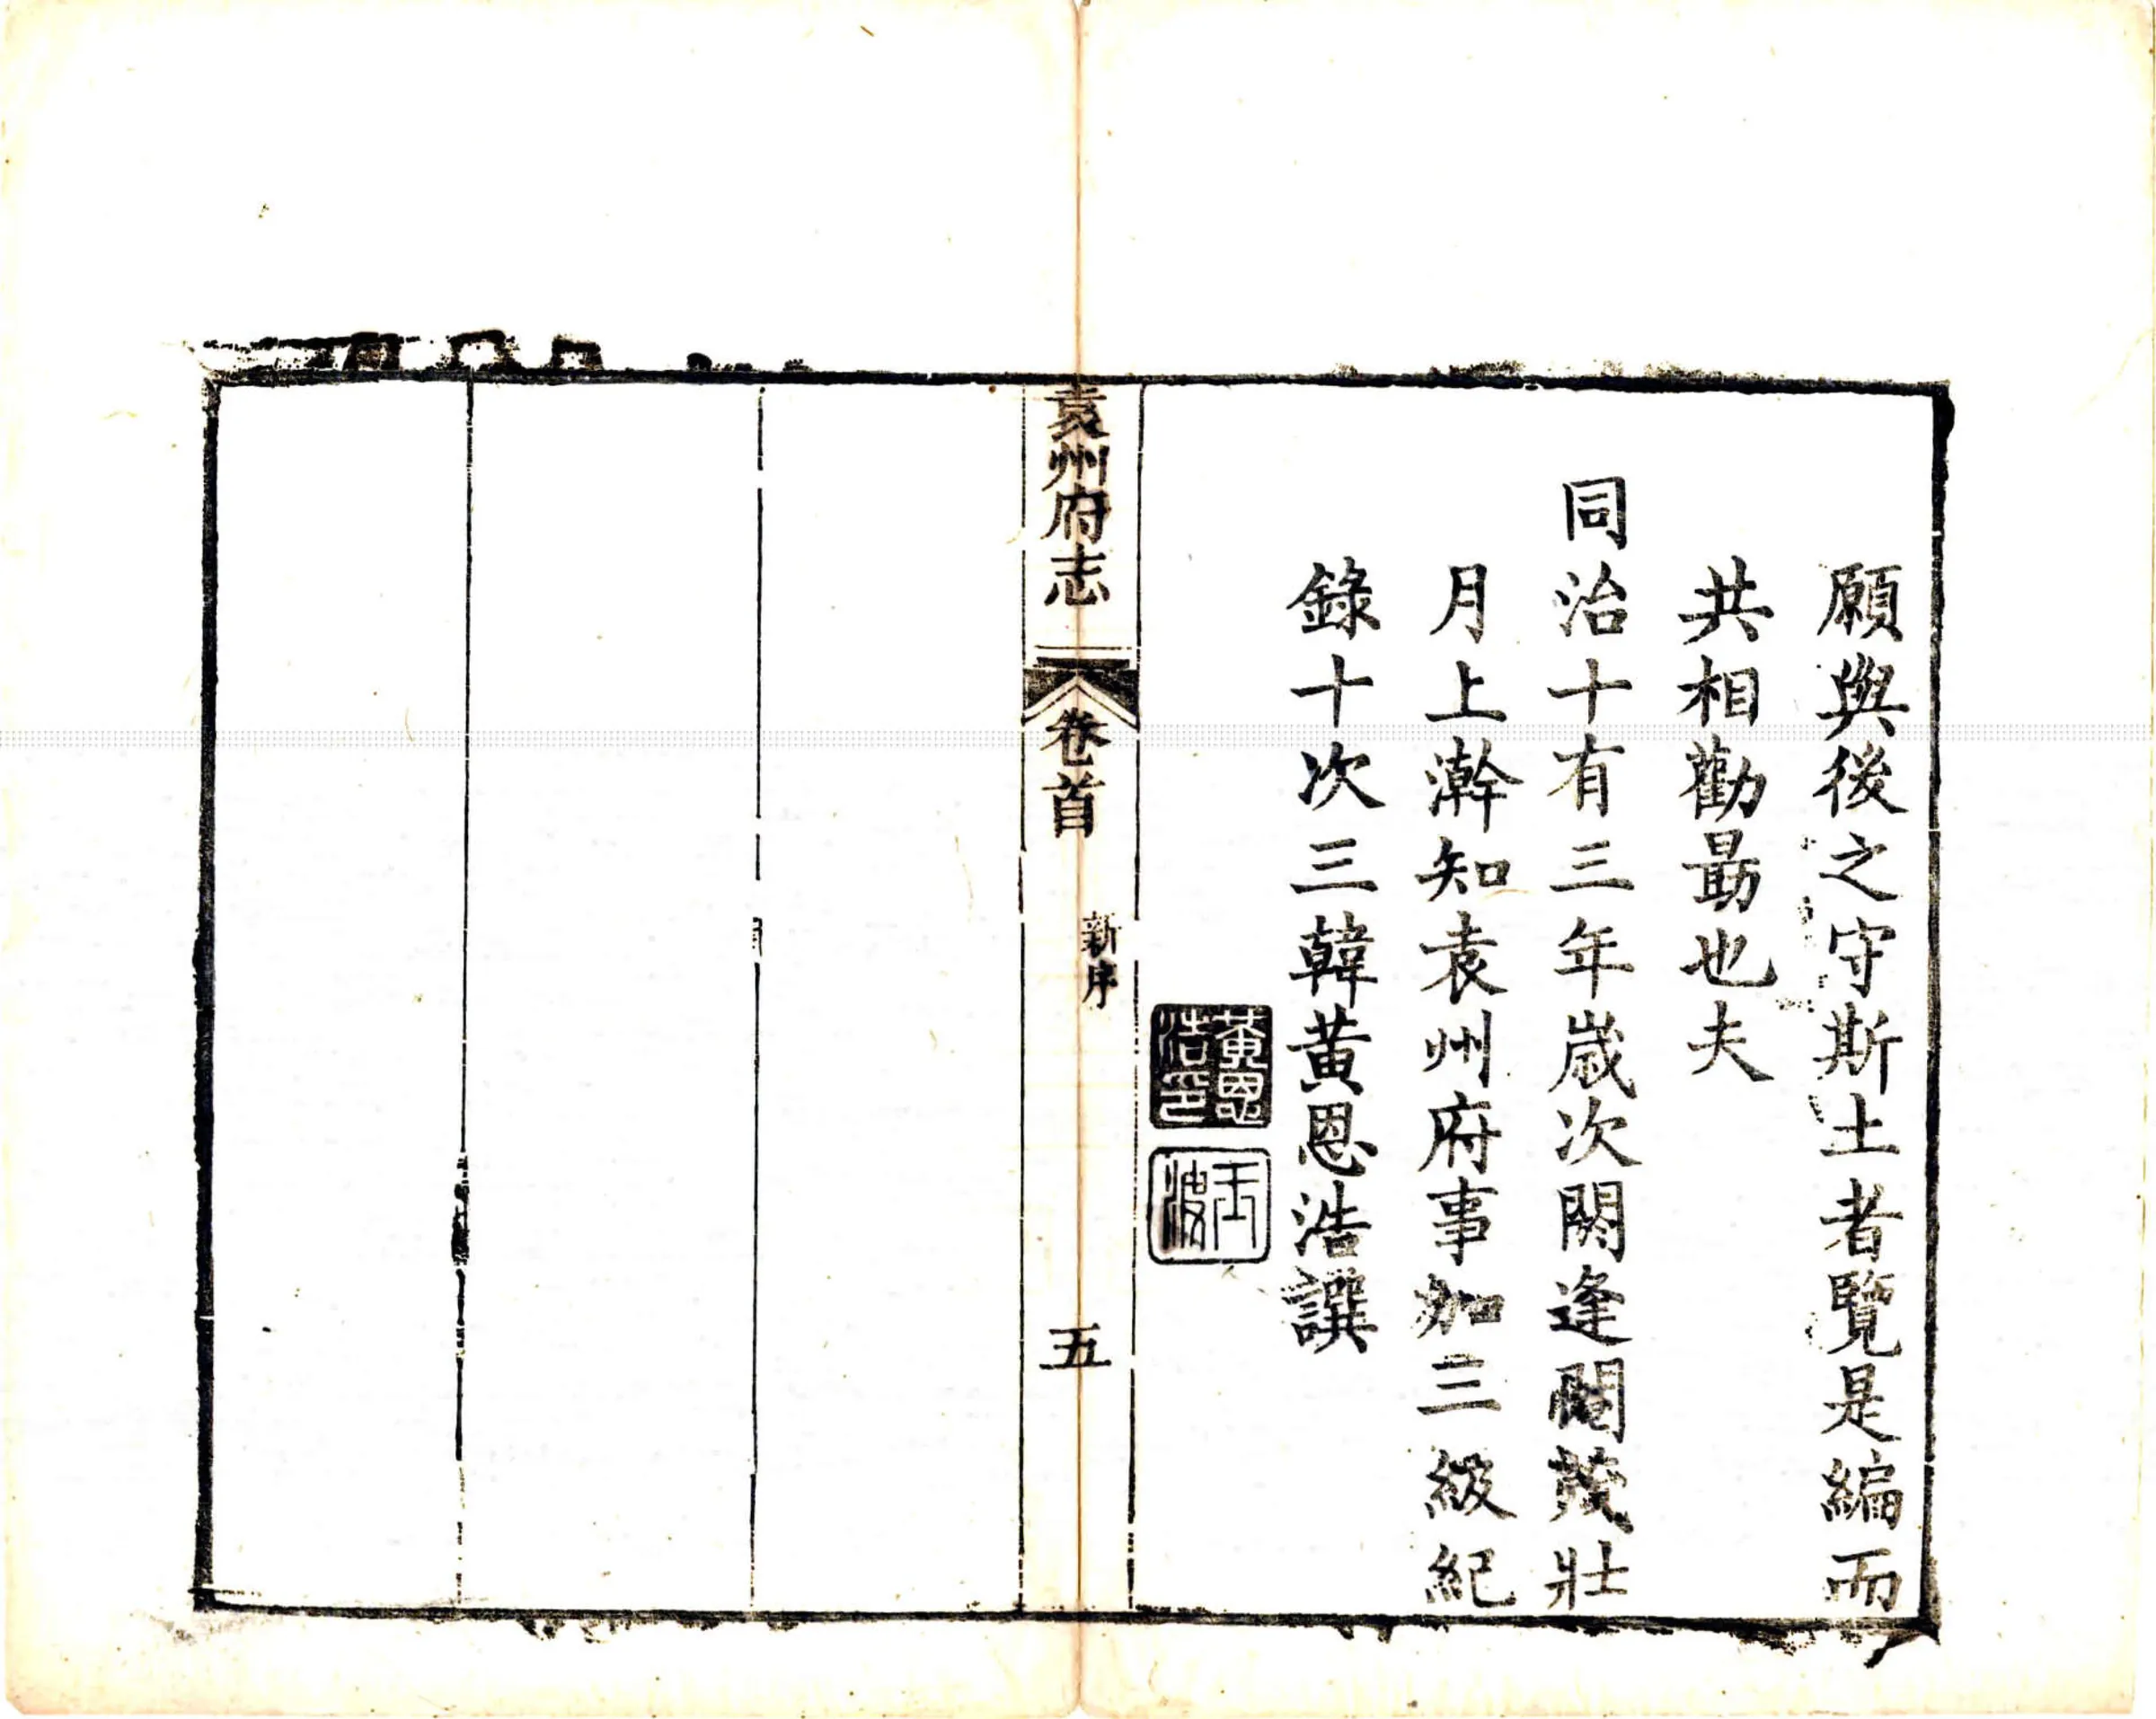 願與後之守斯土者覽是編而
共相勸勗也夫
同治十有三年歲次閼逢閹茂壯
月上澣知袁州府事加三級紀
錄十次三韓黃恩浩譔
黃恩浩印
袁州府志
卷首
新序
五